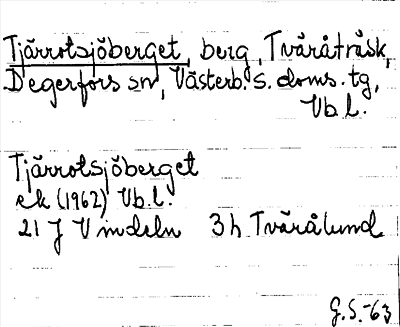 Tjärrotsjöberget, berg, Tvåråträsk,
Degerfors sn, Västerb. s. doms. tg,
Vb l.
Tjärrotsjöberget
ek (1962) Vb. l.
21 J Vindeln 3h Tvärålund
G.S.-63